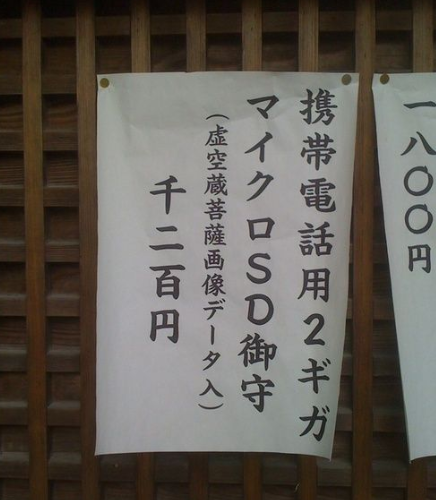 携帯電話用2ギガ
マイクロSD御守
(虚空蔵菩薩画像データ入)
千二百円
一八〇〇円